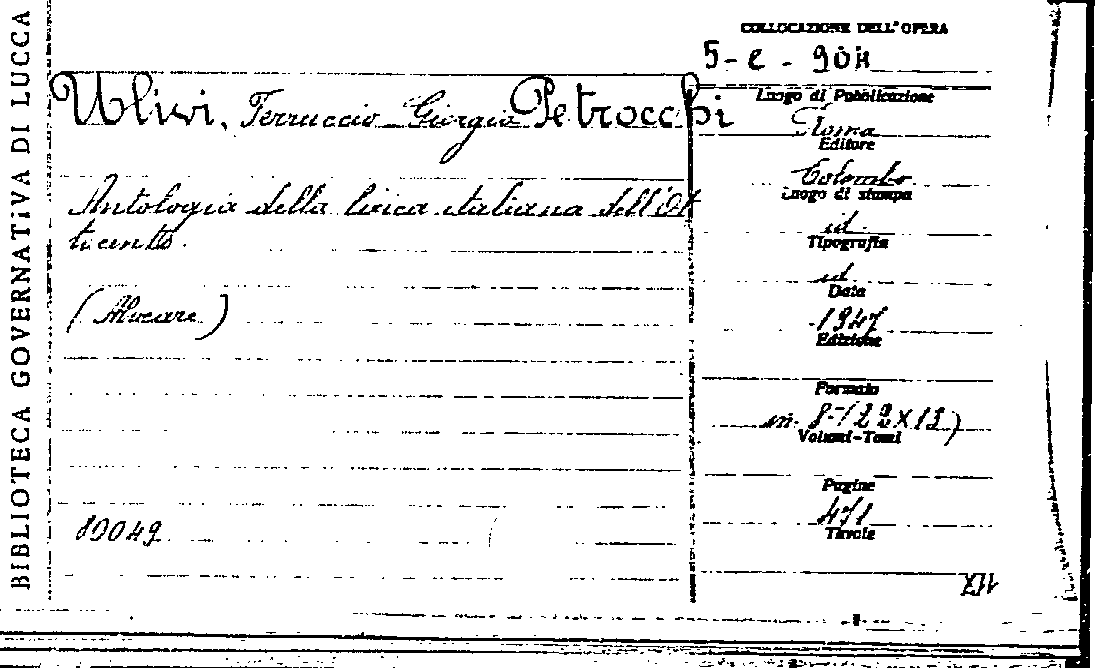 BIBLIOTECA GOVERNATIVA DI LUCCA
COLLOCAZIONE DELL'OPERA
5-e-904
Ulivi, Ferruccio Giorgio Petrocchi
Antologia della lirica italiana dell'Ot
tocento.
(Alveare)
80049
Luogo di Pubblicazione
Roma
Editore
Colombo
Luogo di stampa
id.
Tipografia
id
Data
1947
Edizione
Formato
in-8-(22X13)
Volumi-Tomi
Pagine
471
Tavole